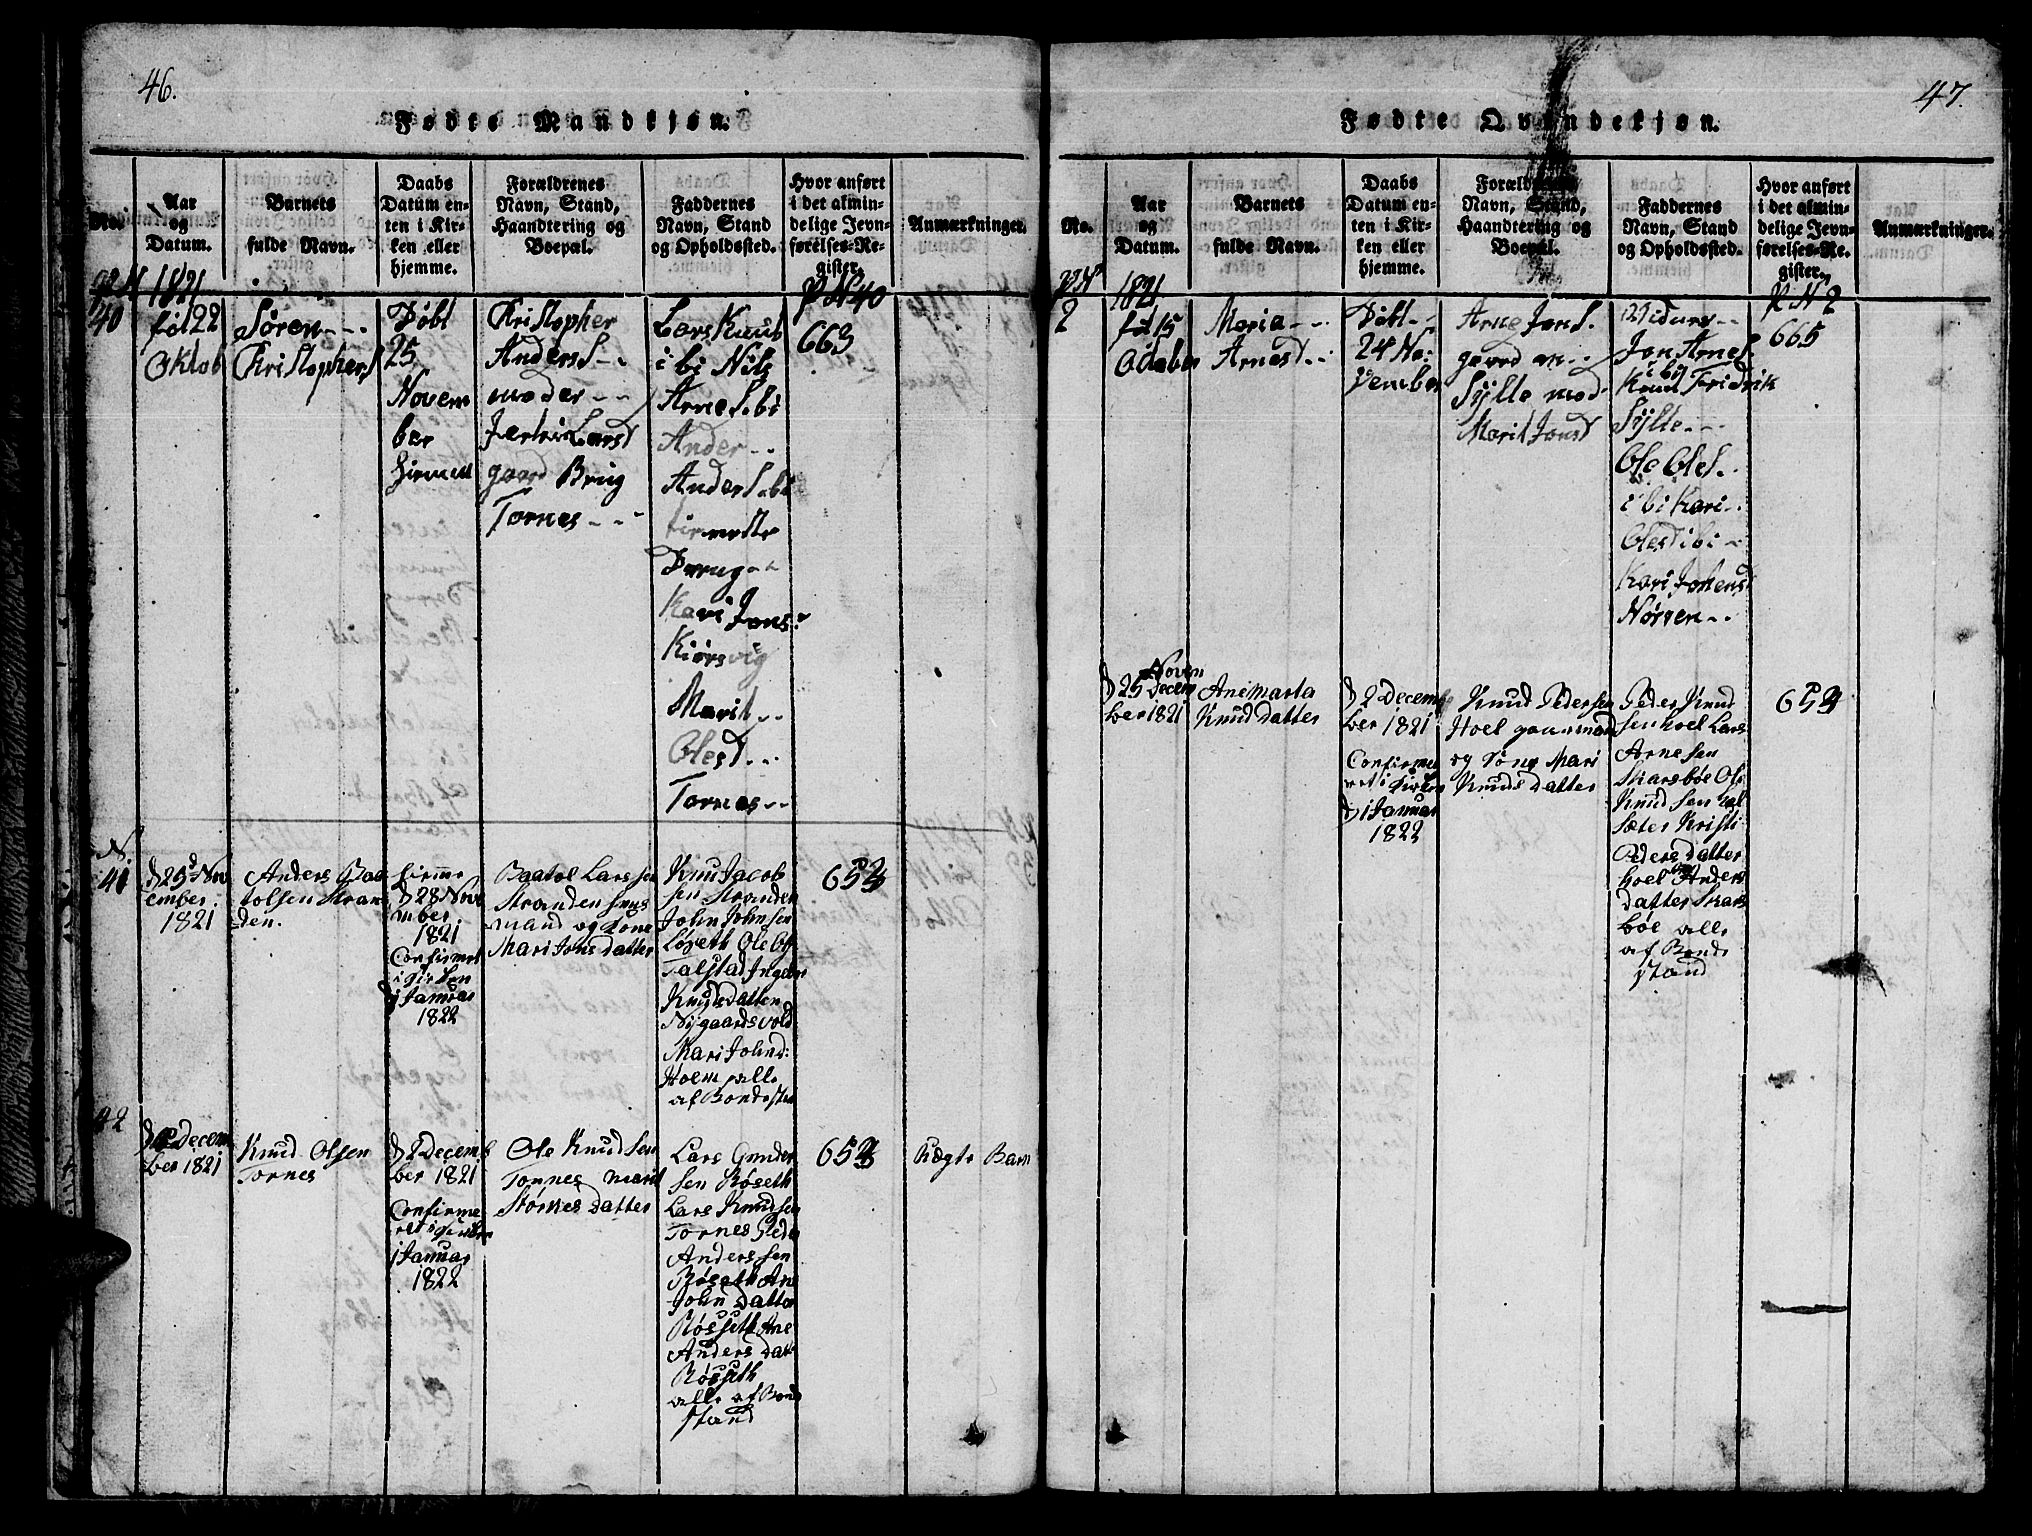 46.
Fødte Mandkjøn.
No.
Aar
og
Datum.
Barnets
fulde Navn.
Daabs
Datum en-
ten i Kir-
ken eller
hjemme.
Forældrenes
Navn, Stand,
Haandtering og
Boepæl.
Faddernes
Navn, Stand
og Opholdssted.
Hvor anført
i det almin-
delige Jevn-
førelses-Re-
gister.
Anmærkninger.
1821
P N 40
40
født 22
Oktob
Søren - - -
Kristophers
Døbt
25
Novem
ber
hiemme
Kristopher
Anders - -
moder - -
Larsd
gaard Brug
Tornes - - -
Lars Knud
i bi Nils
Arnes. bi
Ander - -
Anders. bi
Kari Jons:
Kiørsvig
Marit - -
Olesd - - -
Tornes - -
663
N.
41
d 25 Nov
ember.
1821
Anders Baa
tolsen Stran
den.
hieme
d 28 Nov
ember
1821
Confirmet
i Kirken
1 Januar
1822
Baatol Larssen
Stranden huus
mand og Kone
Mari Jonsdatter
Knu Jacob
sen Stranden
John Johnsen
Løseth Ole Ols
Talstad Ingebor
Knudsdatter
Nygaardsvold
Mari Johnd:
Hoem alle
af Bondestan
653
42
d 2 Decem
ber 1821
Knud Olsen
Tornes
d 2 Decemb
ber 1821
Confirme
ret i Kirken
1 Januar
1822
Ole Knudsen
Tornes Marit
Størkesdatter
Lars Gunder
sen Røseth
Lars Knudsen
Tornes Peder
Anderssen
Røseth Ane
John Datter
Røsseth Ane
Anders dat
Røsseth
alle af Bond
stand
653
Uægte Barn
47.
Fødte Qvindekjøn.
No.
Aar
og
Datum.
Barnets
fulde Navn.
Daabs
Datum en-
ten i Kir-
ken eller
hjemme.
Forældrenes
Navn, Stand,
Haandtering og
Boepæl.
Faddernes
Navn, Stand
og Opholdssted.
Hvor anført
i det almin-
delige Jevn-
førelses-Re-
gister.
Anmærkninger.
1821
P N 2
2
fød 15
Octaber
Maria - - -
Arnesd - -
Døbt - -
24 No:
vember
Arne Jons.
gaard m - -
Sylte mod
Marit Jonsd
Jon Arnes.
i bi
Knud Fridrik
Sylte - - -
Ole Oles. -
i bi Kari - -
Olesd i bi - -
Kari Johensd
Nørven - -
665
Noven
d 25 Decem
ber 1821
Anemarta
Knud Datter
d 2 Decemb
ber 1821
Confirme
ret i Kirken
d 1 Januar
1822
Knud Pedersen
Hoel gaarmand
og Kone Mari
Knuds datter
Peder Knud
sen hoel Lars
Arnesen
Skarsbøe Ole
Knud sen hol
Sæter Kristi
Peders datter
hoel Ane Anders
datter Skars
bøe alle
af Bonde
stand
653